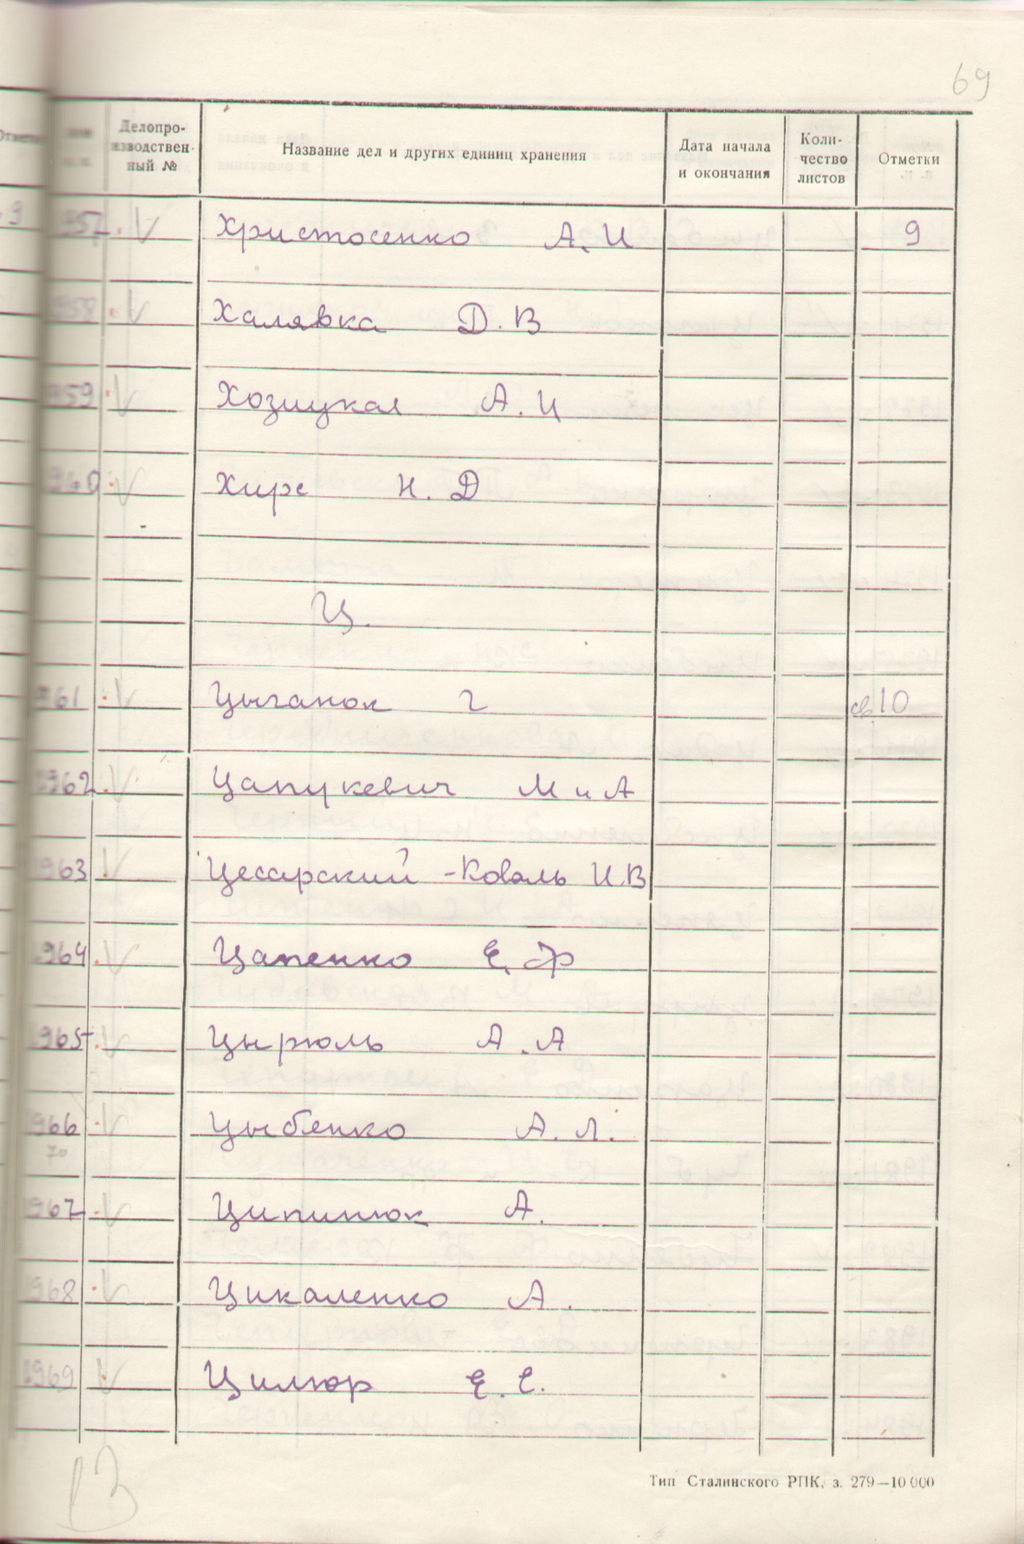 69
Отметки
Делопро-
изводствен-
ный №
Название дел и других единиц хранения
Дата начала
и окончания
Коли-
чество
листов
Отметки
9 1957. V Христосенко А. И 9
1958 V Халявка Д. В
1959 V Хозицкая А. И
1960 V Хирс Н. Д
Ц.
1961 V Цыганок Г св 10
1962. V Цапукевич М и А
1963 V Цесарский - Коваль И. В
1964. V Цапенко Е. Ф
1965. V Цырюль А. А
1966 V Цыбенко А. Л.
1967. V Ципинюк А.
1968. V Цикаленко А.
1969 V Цилюр Е. Е.
13
Тип Сталинского РПК, з. 279—10 000